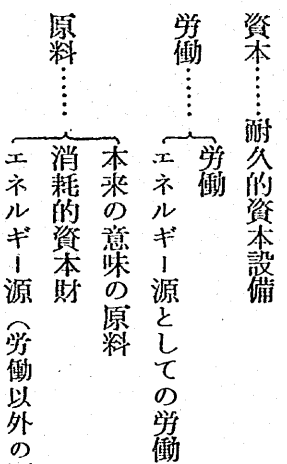 資本……耐久的資本設備
労働……労働
エネルギー源としての労働
原料……本来の意味の原料
消耗的資本財
エネルギー源(労働以外の